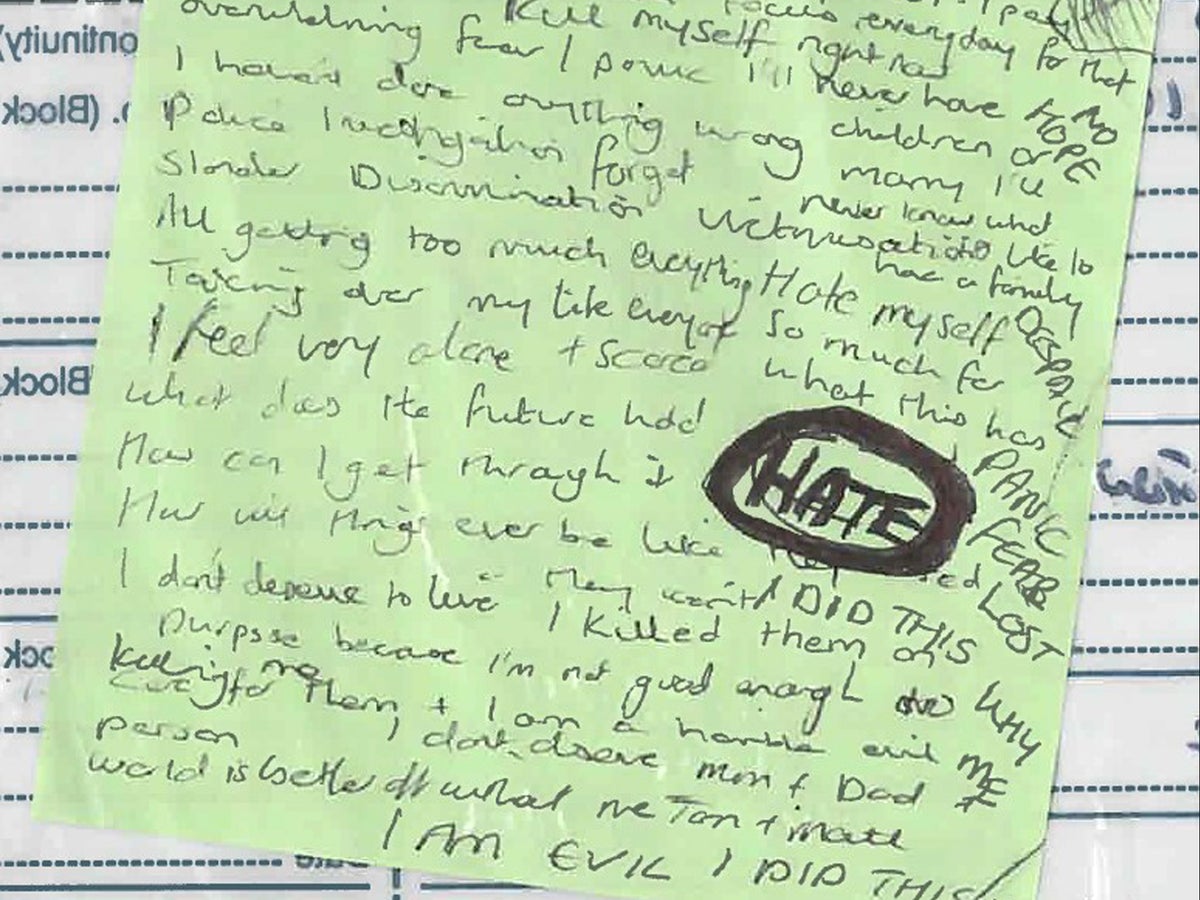 overwhelming fear / panic
Kill myself right now
focus everyday for that
I'll never have
NO
HOPE
I haven't done anything wrong
children or
marry I'll
never know what
like to
have a family
Police Investigation forget
Slander Discrimination Victimisation
All getting too much everything
Hate myself
so much for
what this has
DESPAIR
PANIC
FEAR
LOST
Taking over my life everyone
I feel very alone + scared
what does the future hold
How can I get through it
HATE
How will things ever be like
I don't deserve to live
They went
I DID THIS
WHY
ME
I killed them on
purpose because I'm not good enough
killing me
care for them + I am a horrible evil
person
I don't deserve Mum + Dad
world is better off without me Tom + Matt
I AM EVIL I DID THIS
ontinuity)
o. (Block
Block
ock
Date